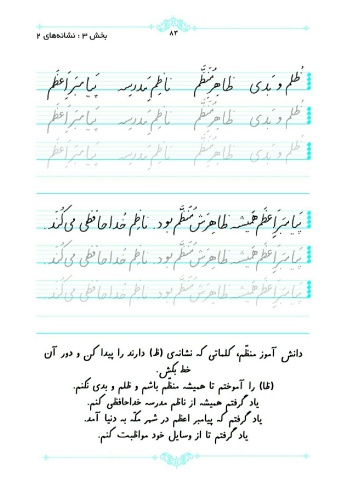 بخش ۳ : نشانه‌های ۲
۸۳
ظُلم و بَدی ظاهِرِ مُنَظَّم ناظِمِ مَدرِسه پَیامبَرِ اَعظَم
ظُلم و بَدی ظاهِرِ مُنَظَّم ناظِمِ مَدرِسه پَیامبَرِ اَعظَم
ظُلم و بَدی ظاهِرِ مُنَظَّم ناظِمِ مَدرِسه پَیامبَرِ اَعظَم
پَیامبَرِ اَعظَم هَمیشه ظاهِرَش مُنَظَّم بود. ناظِم خُداحافِظی می‌کُنَد.
پَیامبَرِ اَعظَم هَمیشه ظاهِرَش مُنَظَّم بود. ناظِم خُداحافِظی می‌کُنَد.
پَیامبَرِ اَعظَم هَمیشه ظاهِرَش مُنَظَّم بود. ناظِم خُداحافِظی می‌کُنَد.
دانش آموز منظّم، کلماتی که نشانه‌ی (ظ) دارند را پیدا کن و دور آن
خط بکش.
(ظ) را آموختم تا همیشه منظّم باشم و ظلم و بدی نکنم.
یاد گرفتم همیشه از ناظم مدرسه خداحافظی کنم.
یاد گرفتم که پیامبر اعظم در شهر مکّه به دنیا آمد.
یاد گرفتم تا از وسایل خود مواظبت کنم.